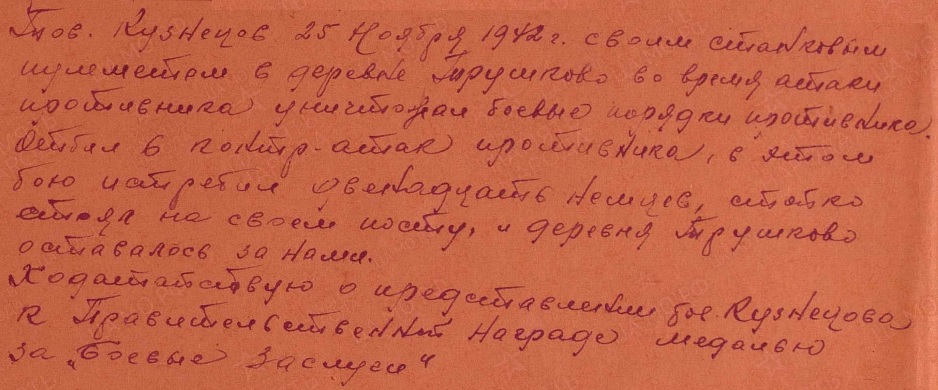 Тов. Кузнецов 25 Ноября 1942 г. своим станковым
пулеметом в деревне Трушково во время атаки
противника уничтожал боевые порядки противника.
Отбил 6 контр-атак противника, в этом
бою истребил двенадцать немцев, стойко
стоял на своем посту, и деревня Трушково
оставалось за нами.
Ходатайствую о представлении бое. Кузнецова
к Правительственной Награде медалью
за „Боевые заслуги"